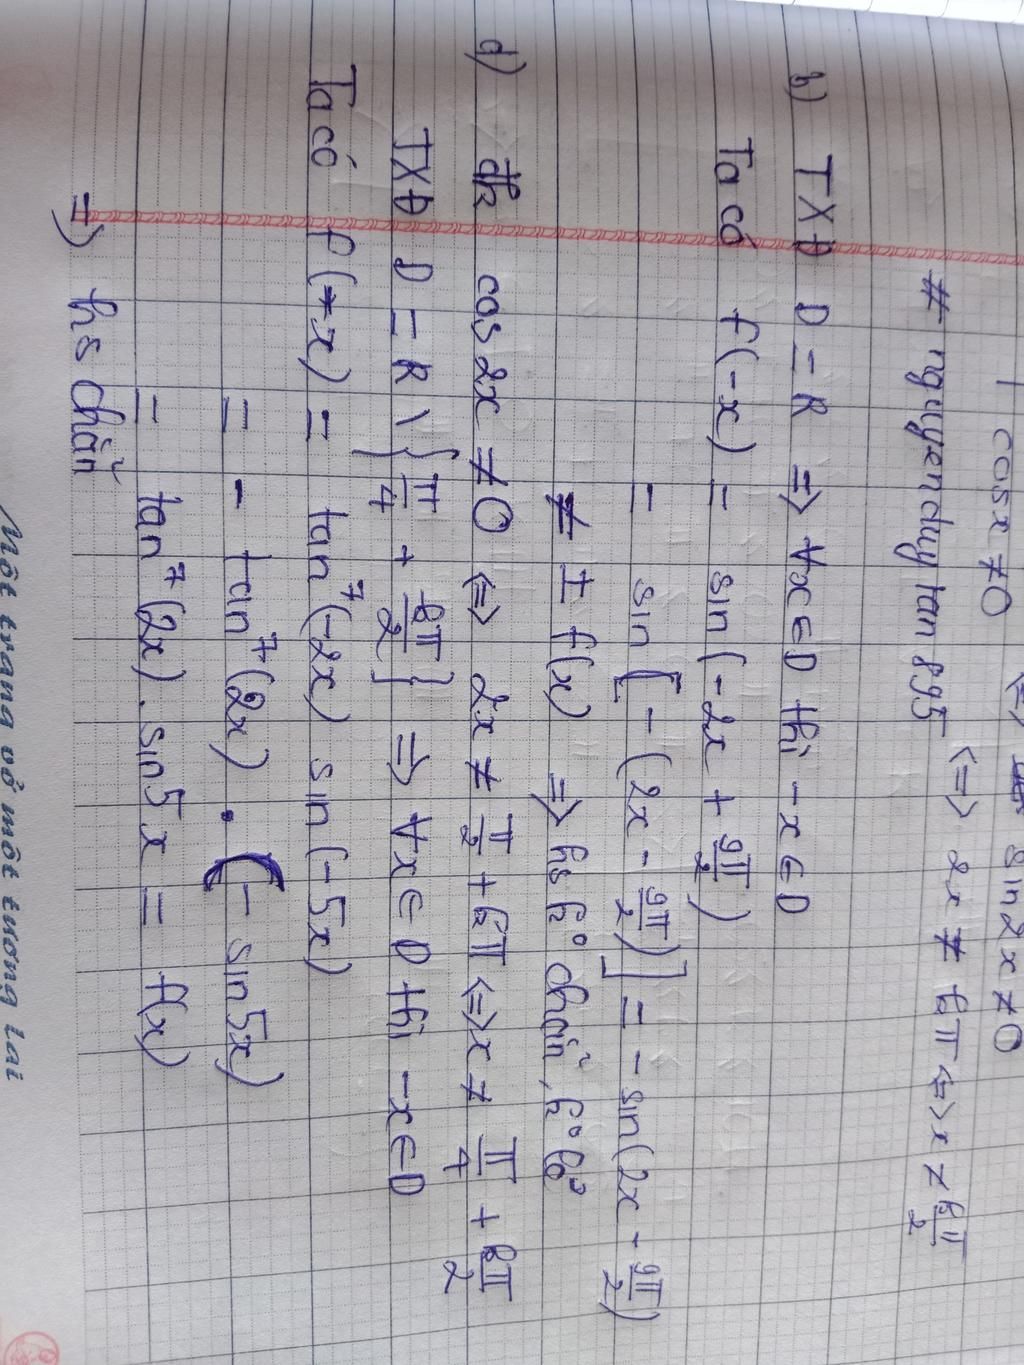 cosx ≠ 0 <=> sin2x ≠ 0
# nguyenduytan895 <=> 2x ≠ kπ <=> x ≠ kπ/2
b) TXĐ D = R => ∀x∈D thì -x∈D
Ta có f(-x) = sin(-2x + 9π/2)
= sin[-(2x - 9π/2)] = -sin(2x - 9π/2)
≠ ± f(x) => hs k° chẵn, k° lẻ
d) đk cos2x ≠ 0 <=> 2x ≠ π/2 + kπ <=> x ≠ π/4 + kπ/2
TXĐ D = R \ {π/4 + kπ/2} => ∀x∈D thì -x∈D
Ta có f(-x) = tan⁷(-2x) sin(-5x)
= - tan⁷(2x) . (- sin5x)
= tan⁷(2x) . sin5x = f(x)
=> hs chẵn
Một trang vở một tương lai